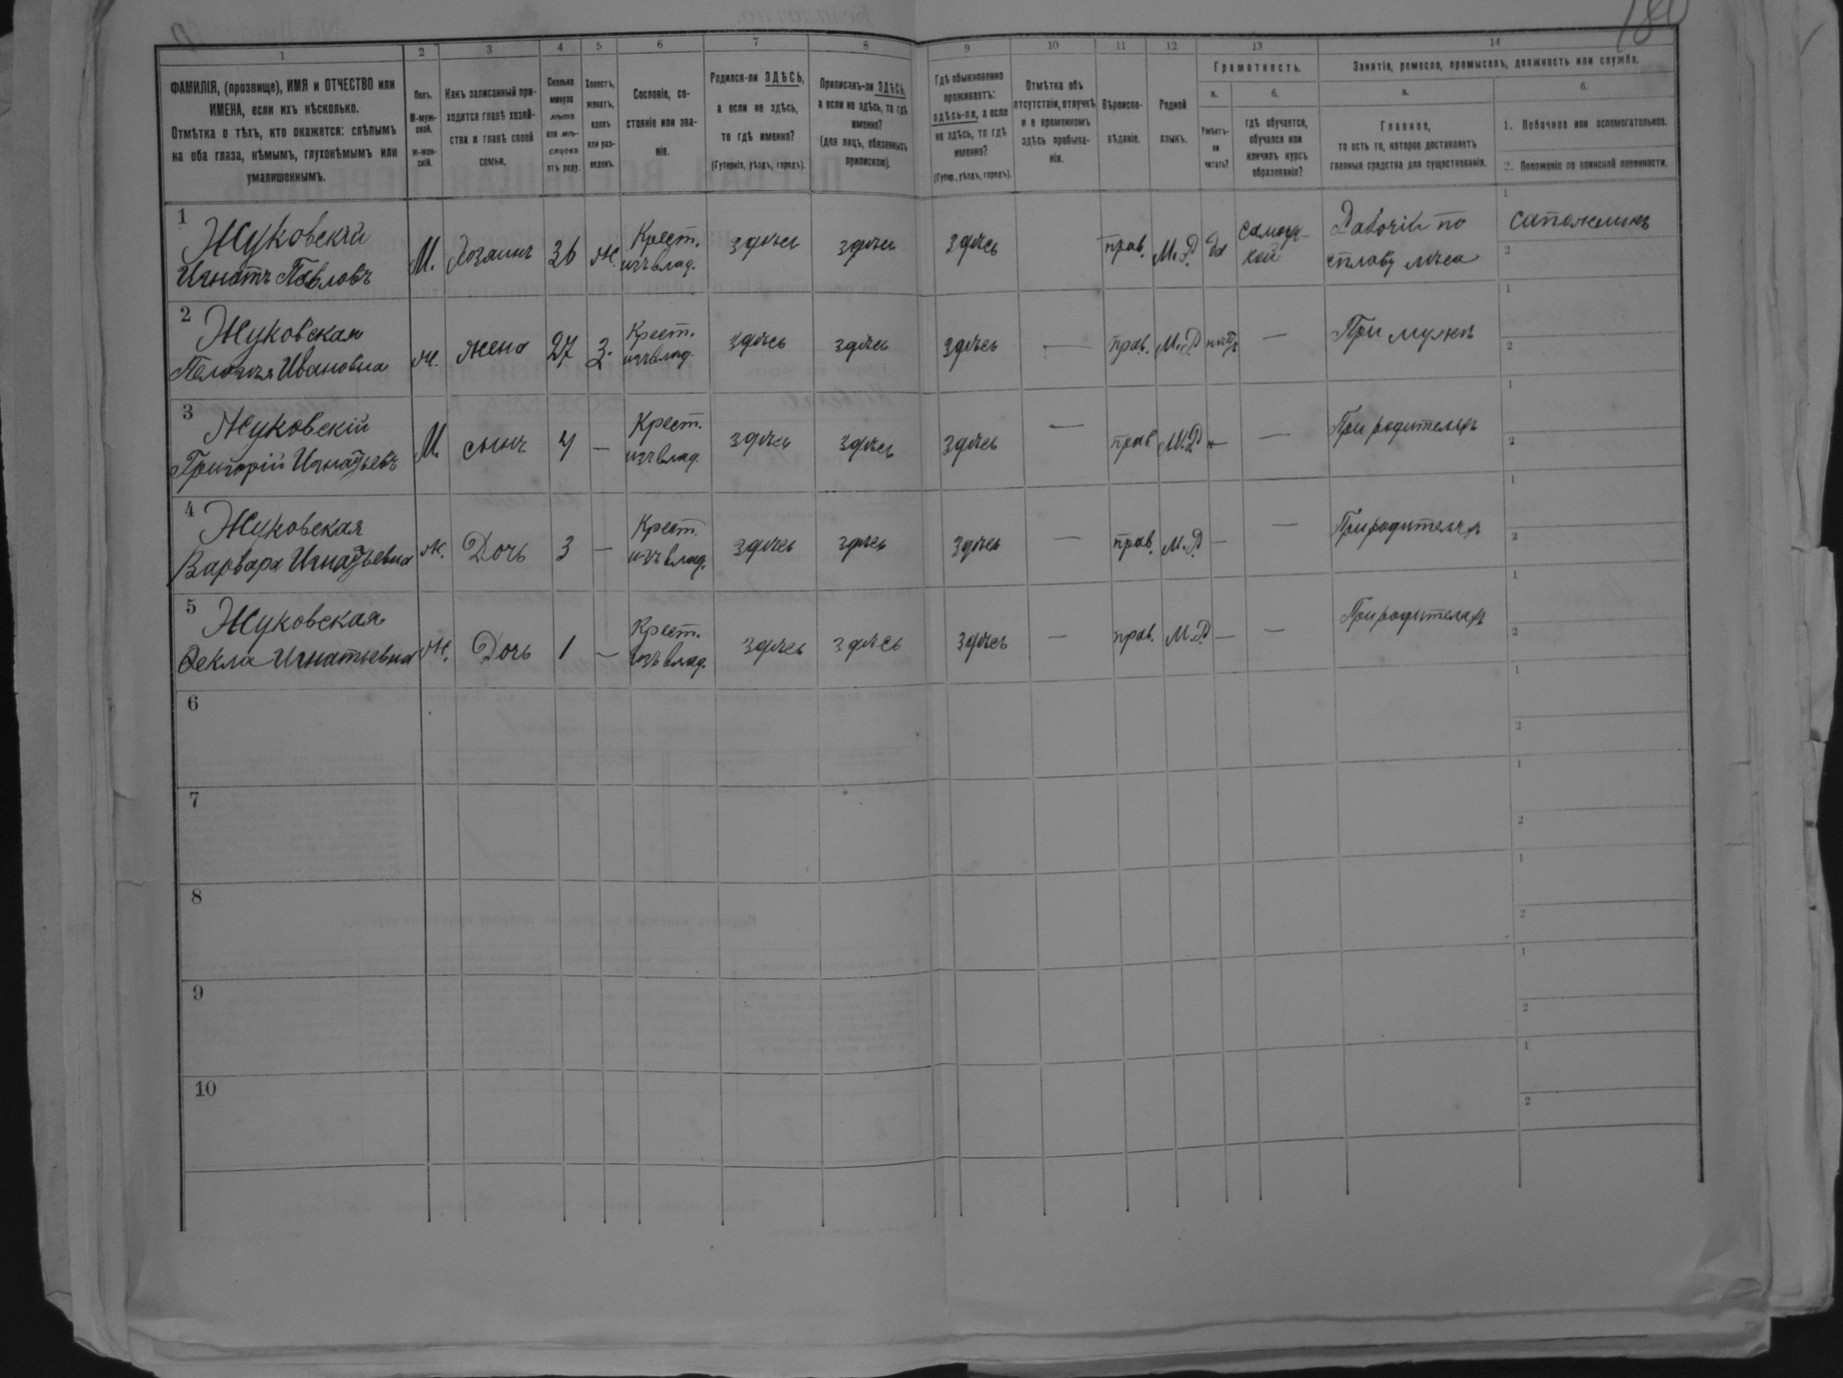 180
1 2 3 4 5 6 7 8 9 10 11 12 13 14
ФАМИЛІЯ, (прозвище), ИМЯ и ОТЧЕСТВО или
ИМЕНА, если ихъ нѣсколько.
Отмѣтка о тѣхъ, кто окажется: слѣпымъ
на оба глаза, нѣмымъ, глухонѣмымъ или
умалишеннымъ.
Полъ.
М-муж-
ской.
Ж-жен-
скій.
Какъ записанный при-
ходится главѣ хозяй-
ства и главѣ своей
семьи.
Сколько
минуло
лѣтъ
или мѣ-
сяцевъ
отъ роду.
Холостъ,
женатъ,
вдовъ
или раз-
веденъ.
Сословіе, со-
стояніе или зва-
ніе.
Родился-ли ЗДѢСЬ,
а если не здѣсь,
то гдѣ именно?
(Губернія, уѣздъ, городъ).
Приписанъ-ли ЗДѢСЬ,
а если не здѣсь, то гдѣ
именно?
(для лицъ, обязанныхъ
припискою).
Гдѣ обыкновенно
проживаетъ:
здѣсь-ли, а если
не здѣсь, то гдѣ
именно?
(Губер., уѣздъ, городъ).
Отмѣтка объ
отсутствіи, отлучкѣ
и о временномъ
здѣсь пребыва-
ніи.
Вѣроиспо-
вѣданіе.
Родной
языкъ.
Грамотность.
а.
Умѣетъ-
ли
читать?
б.
гдѣ обучается,
обучался или
кончилъ курсъ
образованія?
Занятіе, ремесло, промыселъ, должность или служба.
а.
Главное,
то есть то, которое доставляетъ
главныя средства для существованія.
б.
1. Побочное или вспомогательное.
2. Положеніе по воинской повинности.
1 Жуковскій
Игнатъ Павловъ
М. Хозяинъ 36 Ж. Крест.
изъ влад.
здѣсь здѣсь здѣсь прав. М.Р. да самоуч-
кой
Рабочій по
сплаву лѣса
1 сапожникъ
2
2 Жуковская
Пелагія Ивановна
Ж. жена 27 З. Крест.
изъ влад.
здѣсь здѣсь здѣсь — прав. М.Р. — При мужѣ
1
2
3 Жуковскій
Григорій Игнатьевъ
М. сынъ — Крест.
изъ влад.
здѣсь здѣсь здѣсь — прав М.Р. — — При родителяхъ
1
2
4 Жуковская
Варвара Игнатьевна
Ж. Дочь 3 — Крест.
изъ влад.
здѣсь здѣсь здѣсь — прав. М.Р. — — При родителяхъ
1
2
5 Жуковская
Ѳекла Игнатьевна
Ж. Дочь 1 — Крест.
изъ влад.
здѣсь здѣсь здѣсь — прав. М.Р. — — При родителяхъ
1
2
6
1
2
7
1
2
8
1
2
9
1
2
10
1
2